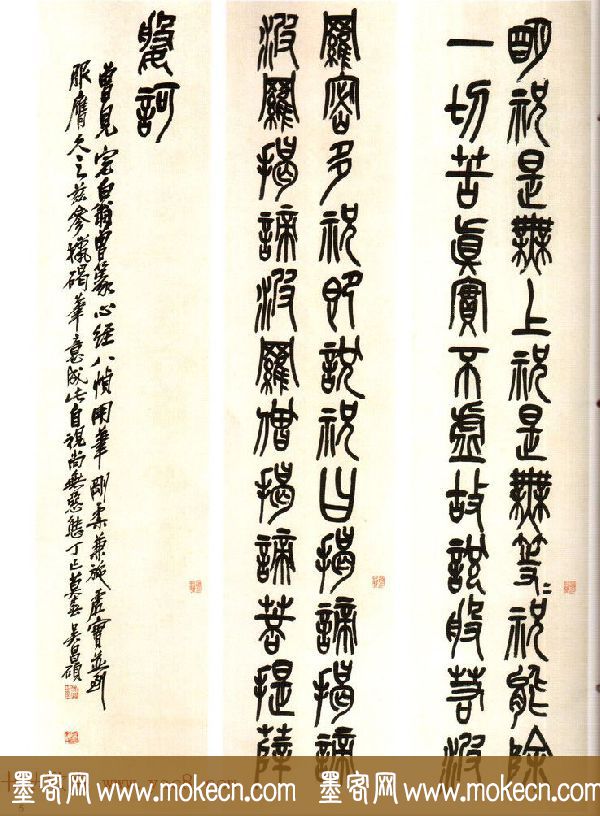 明祝是無上祝是無等〻祝能除
一切苦真實不虛故說般若波
羅密多祝即說祝曰揭諦揭諦
波羅揭諦波羅僧揭諦菩提薩
媻訶
曾見完白翁曾篆心經八幀用筆剛柔兼施虛實並到
服膺久之茲參獵碣筆意成此自視尚無惡態丁巳莫春吳昌碩
墨客网 www.mokecn.com 墨客网 www.mokecn.com